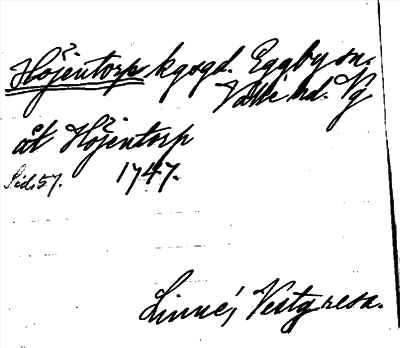 Höjentorp kgsgd. Eggby sn.
Valle hd. Vg
åt Höjentorp
Sid. 57. 1747.
Linné, Vestg resa.